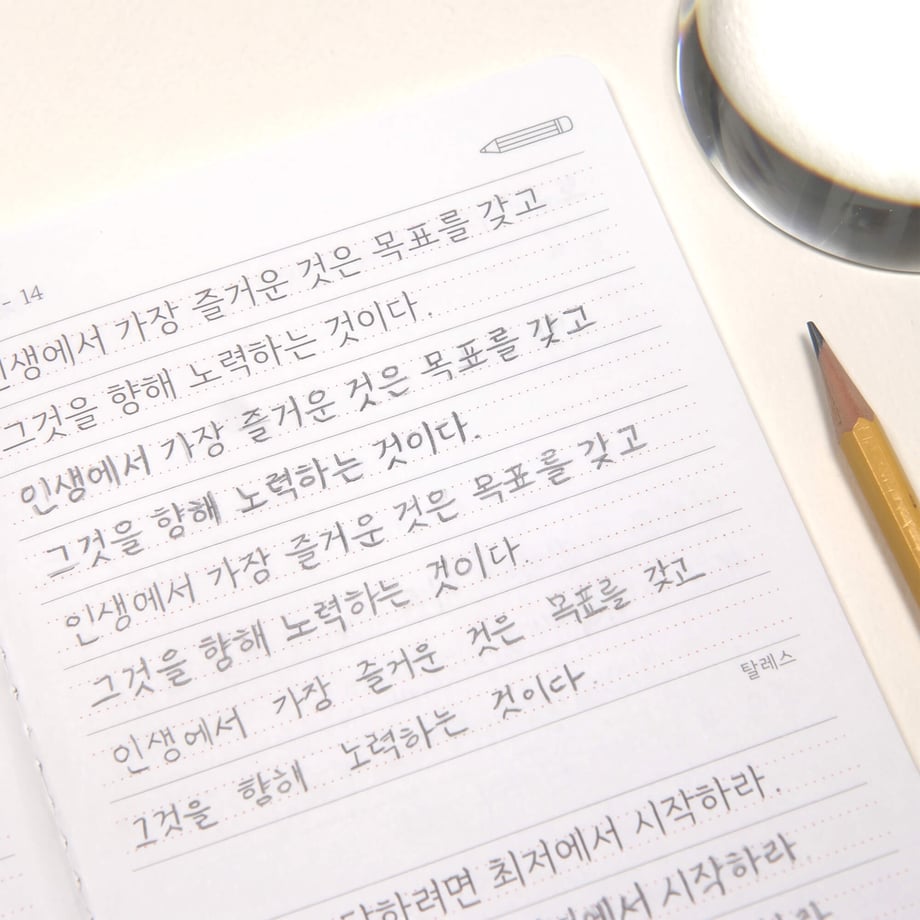 - 14
인생에서 가장 즐거운 것은 목표를 갖고
그것을 향해 노력하는 것이다.
인생에서 가장 즐거운 것은 목표를 갖고
그것을 향해 노력하는 것이다.
인생에서 가장 즐거운 것은 목표를 갖고
그것을 향해 노력하는 것이다.
인생에서 가장 즐거운 것은 목표를 갖고
그것을 향해 노력하는 것이다.
탈레스
최저에서 시작하라.
시작하라